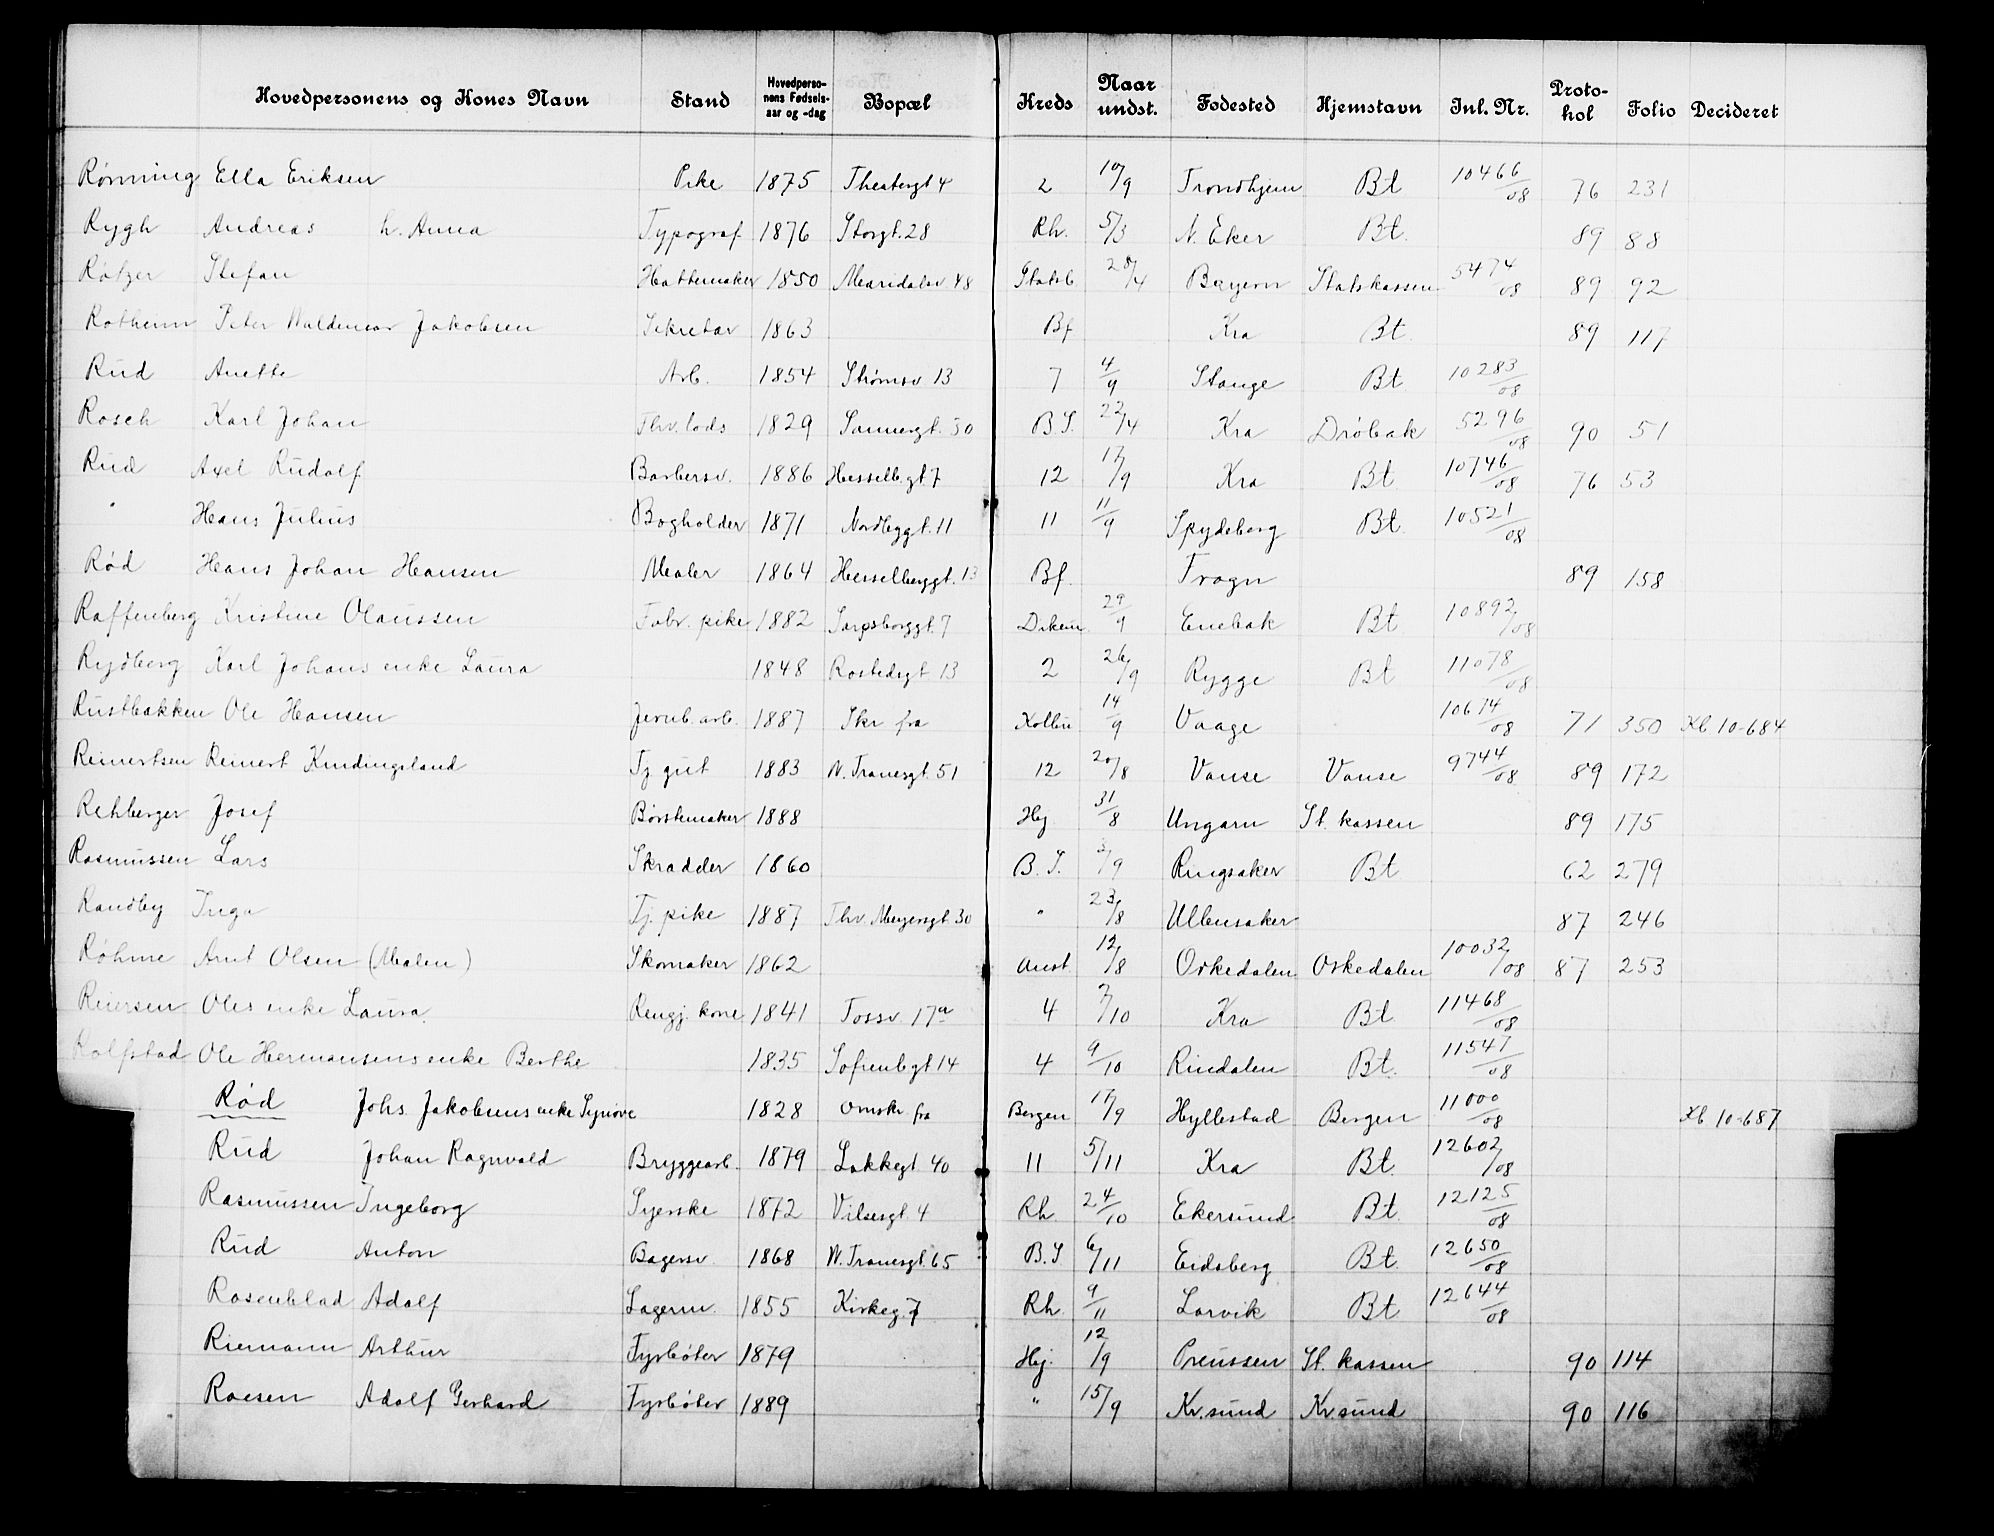 Hovedpersonens og Kones Navn Stand Hovedpersonens Fødselsaar og -dag Bopæl Kreds Naar undst. Fødested Hjemstavn Inl. Nr. Protokol Folio Decideret
Rønning Ella Eriksen Pike 1875 Theatergt 4 2 10/9 Trondhjem Bt 10466/08 76 231
Rygh Andreas h. Anna Typograf 1876 Storgt. 28 Rh. 5/3 N. Eker Bt. 89 88
Rötzer Stefan Hattemaker 1850 Maridalsv 48 Statsb 28/4 Bayern Statskassen 5474/08 89 92
Rotheim Peter Waldemar Jakobsen Sekretær 1863 Bf Kra Bt. 89 117
Rud Anette Arb. 1854 Strømsv 13 7 4/9 Stange Bt 10283/08
Rosch Karl Johan Thv. lods 1829 Sannergt. 30 B.S. 22/4 Kra Drøbak 5296/08 90 51
Rud Axel Rudolf Barbersv. 1886 Hesselb.gt 7 12 17/9 Kra Bt. 10746/08 76 53
" Hans Julius Bogholder 1871 Nordbyggt. 11 11 11/9 Spydeberg Bt. 10521/08
Rød Hans Johan Hansen Maler 1864 Hesselberggt. 13 Bf. Trogn 89 158
Raffenberg Kristine Olaussen Fabr. pike 1882 Sarpsborggt. 7 Dikem 29/9 Enebak Bt. 10892/08
Rydberg Karl Johans enke Laura 1848 Rostedsgt 13 2 26/9 Rygge Bt 11078/08
Rustbakken Ole Hansen Jernb. arb. 1887 Skr fra Kolbu 14/9 Vaage 10674/08 71 350 Kb 10-684
Reinertsen Reinert Kindingsland Tj. gut 1883 W. Tranesgt. 51 12 20/8 Vanse Vanse 9744/08 89 172
Rehberger Josef Børstemaker 1888 Hej 31/8 Ungarn St. kassen 89 175
Rasmussen Lars Skrædder 1860 B.S. 3/9 Ringsaker Bt 62 279
Randby Inga Tj. pike 1887 Thv. Meyersgt 30 " 23/8 Ullensaker 87 246
Røhme Arnt Olsen (Malen) Skomaker 1862 Anst 12/8 Orkedalen Orkedalen 10032/08 87 253
Reiersen Oles enke Laura Rengj. kone 1841 Fossv. 17a 4 7/10 Kra Bt 11468/08
Rolfstad Ole Hermansens enke Berthe 1835 Sofienbgt 14 4 9/10 Rindalen Bt. 11547/08
Rød Johs. Jakobsens enke Synnøve 1828 Omskr. fra Bergen 17/9 Hyllestad Bergen 11000/08 Kb 10-687
Rud Johan Ragnvald Bryggearb. 1879 Lakkegt 40 11 5/11 Kra Bt. 12602/08
Rasmussen Ingeborg Syerske 1872 Vilsesgt. 4 Rh. 24/10 Ekersund Bt. 12125/08
Rud Anton Bagersv. 1868 W. Tranesgt. 65 B.S 6/11 Eidsberg Bt. 12650/08
Rosenblad Adolf Lagerm. 1855 Kirkeg. 7 Rh. 9/11 Larvik Bt 12644/08
Riemann Arthur Fyrbøter 1879 Hej. 12/9 Preussen St. kassen 90 114
Roesen Adolf Gerhard Fyrbøter 1889 " 15/9 Kr.sund Kr.sund 90 116